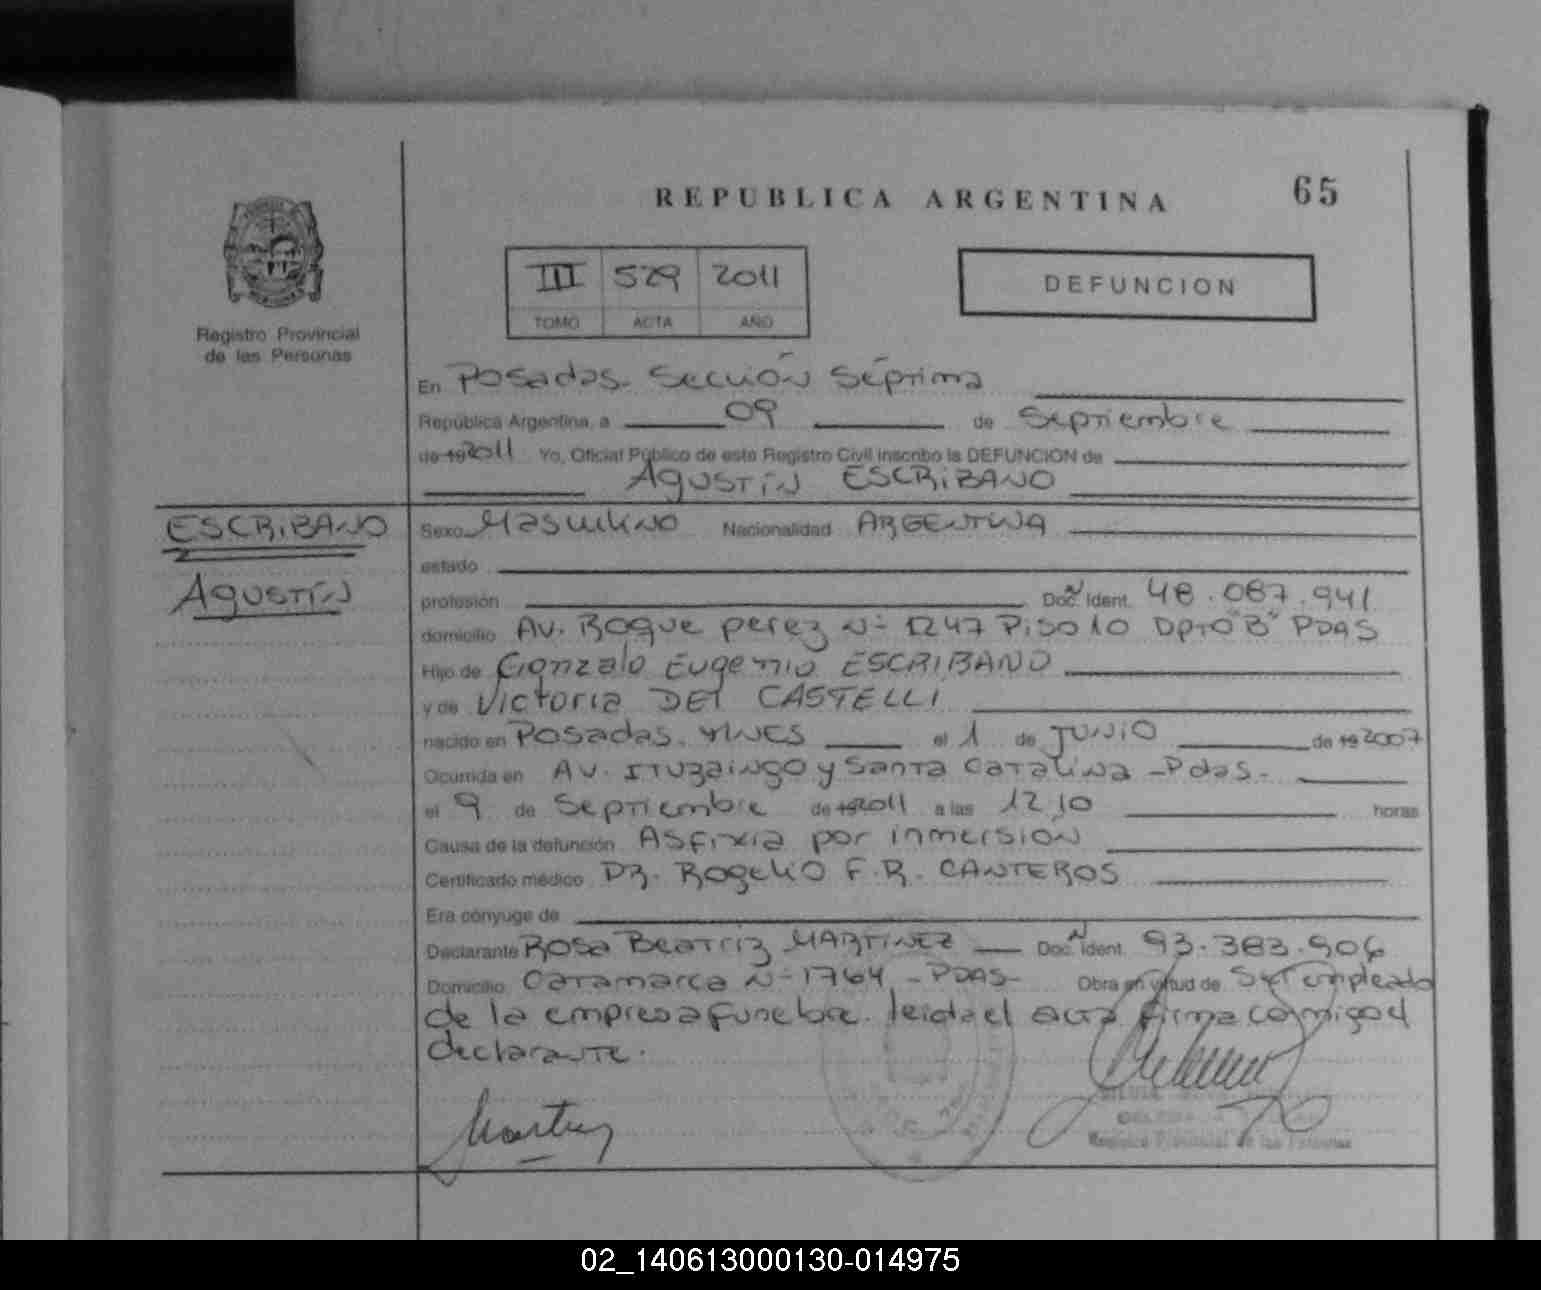 REPUBLICA ARGENTINA
65
Registro Provincial
de las Personas
III 529 2011
TOMO ACTA AÑO
DEFUNCION
En Posadas. Sección Séptima
República Argentina, a 09 de Septiembre
de 19 2011 Yo, Oficial Público de este Registro Civil inscribo la DEFUNCION de
Agustín ESCRIBANO
ESCRIBANO
Agustín
Sexo Masculino Nacionalidad ARGENTINA
estado
profesión Doc. Ident. 48.087.941
domicilio Av. Roque perez Nº 1247 Piso 10 Dpto "B" PDAS
Hijo de Gonzalo Eugenio ESCRIBANO
y de Victoria DEI CASTELLI
nacido en Posadas. Mnes el 1 de Junio de 19 2007
Ocurrida en Av. Ituzaingo y Santa Catalina - Pdas -
el 9 de Septiembre de 19 2011 a las 12,10 horas
Causa de la defunción Asfixia por inmersión
Certificado médico DR. Rogelio F. R. CANTEROS
Era cónyuge de
Declarante Rosa Beatriz MARTINEZ Doc. Ident. 93.383.906
Domicilio Catamarca Nº 1764 - PDAS - Obra en virtud de ser empleado
de la empresa funebre. leida el acta firma conmigo el
declarante.
Registro Provincial de las Personas
02_140613000130-014975